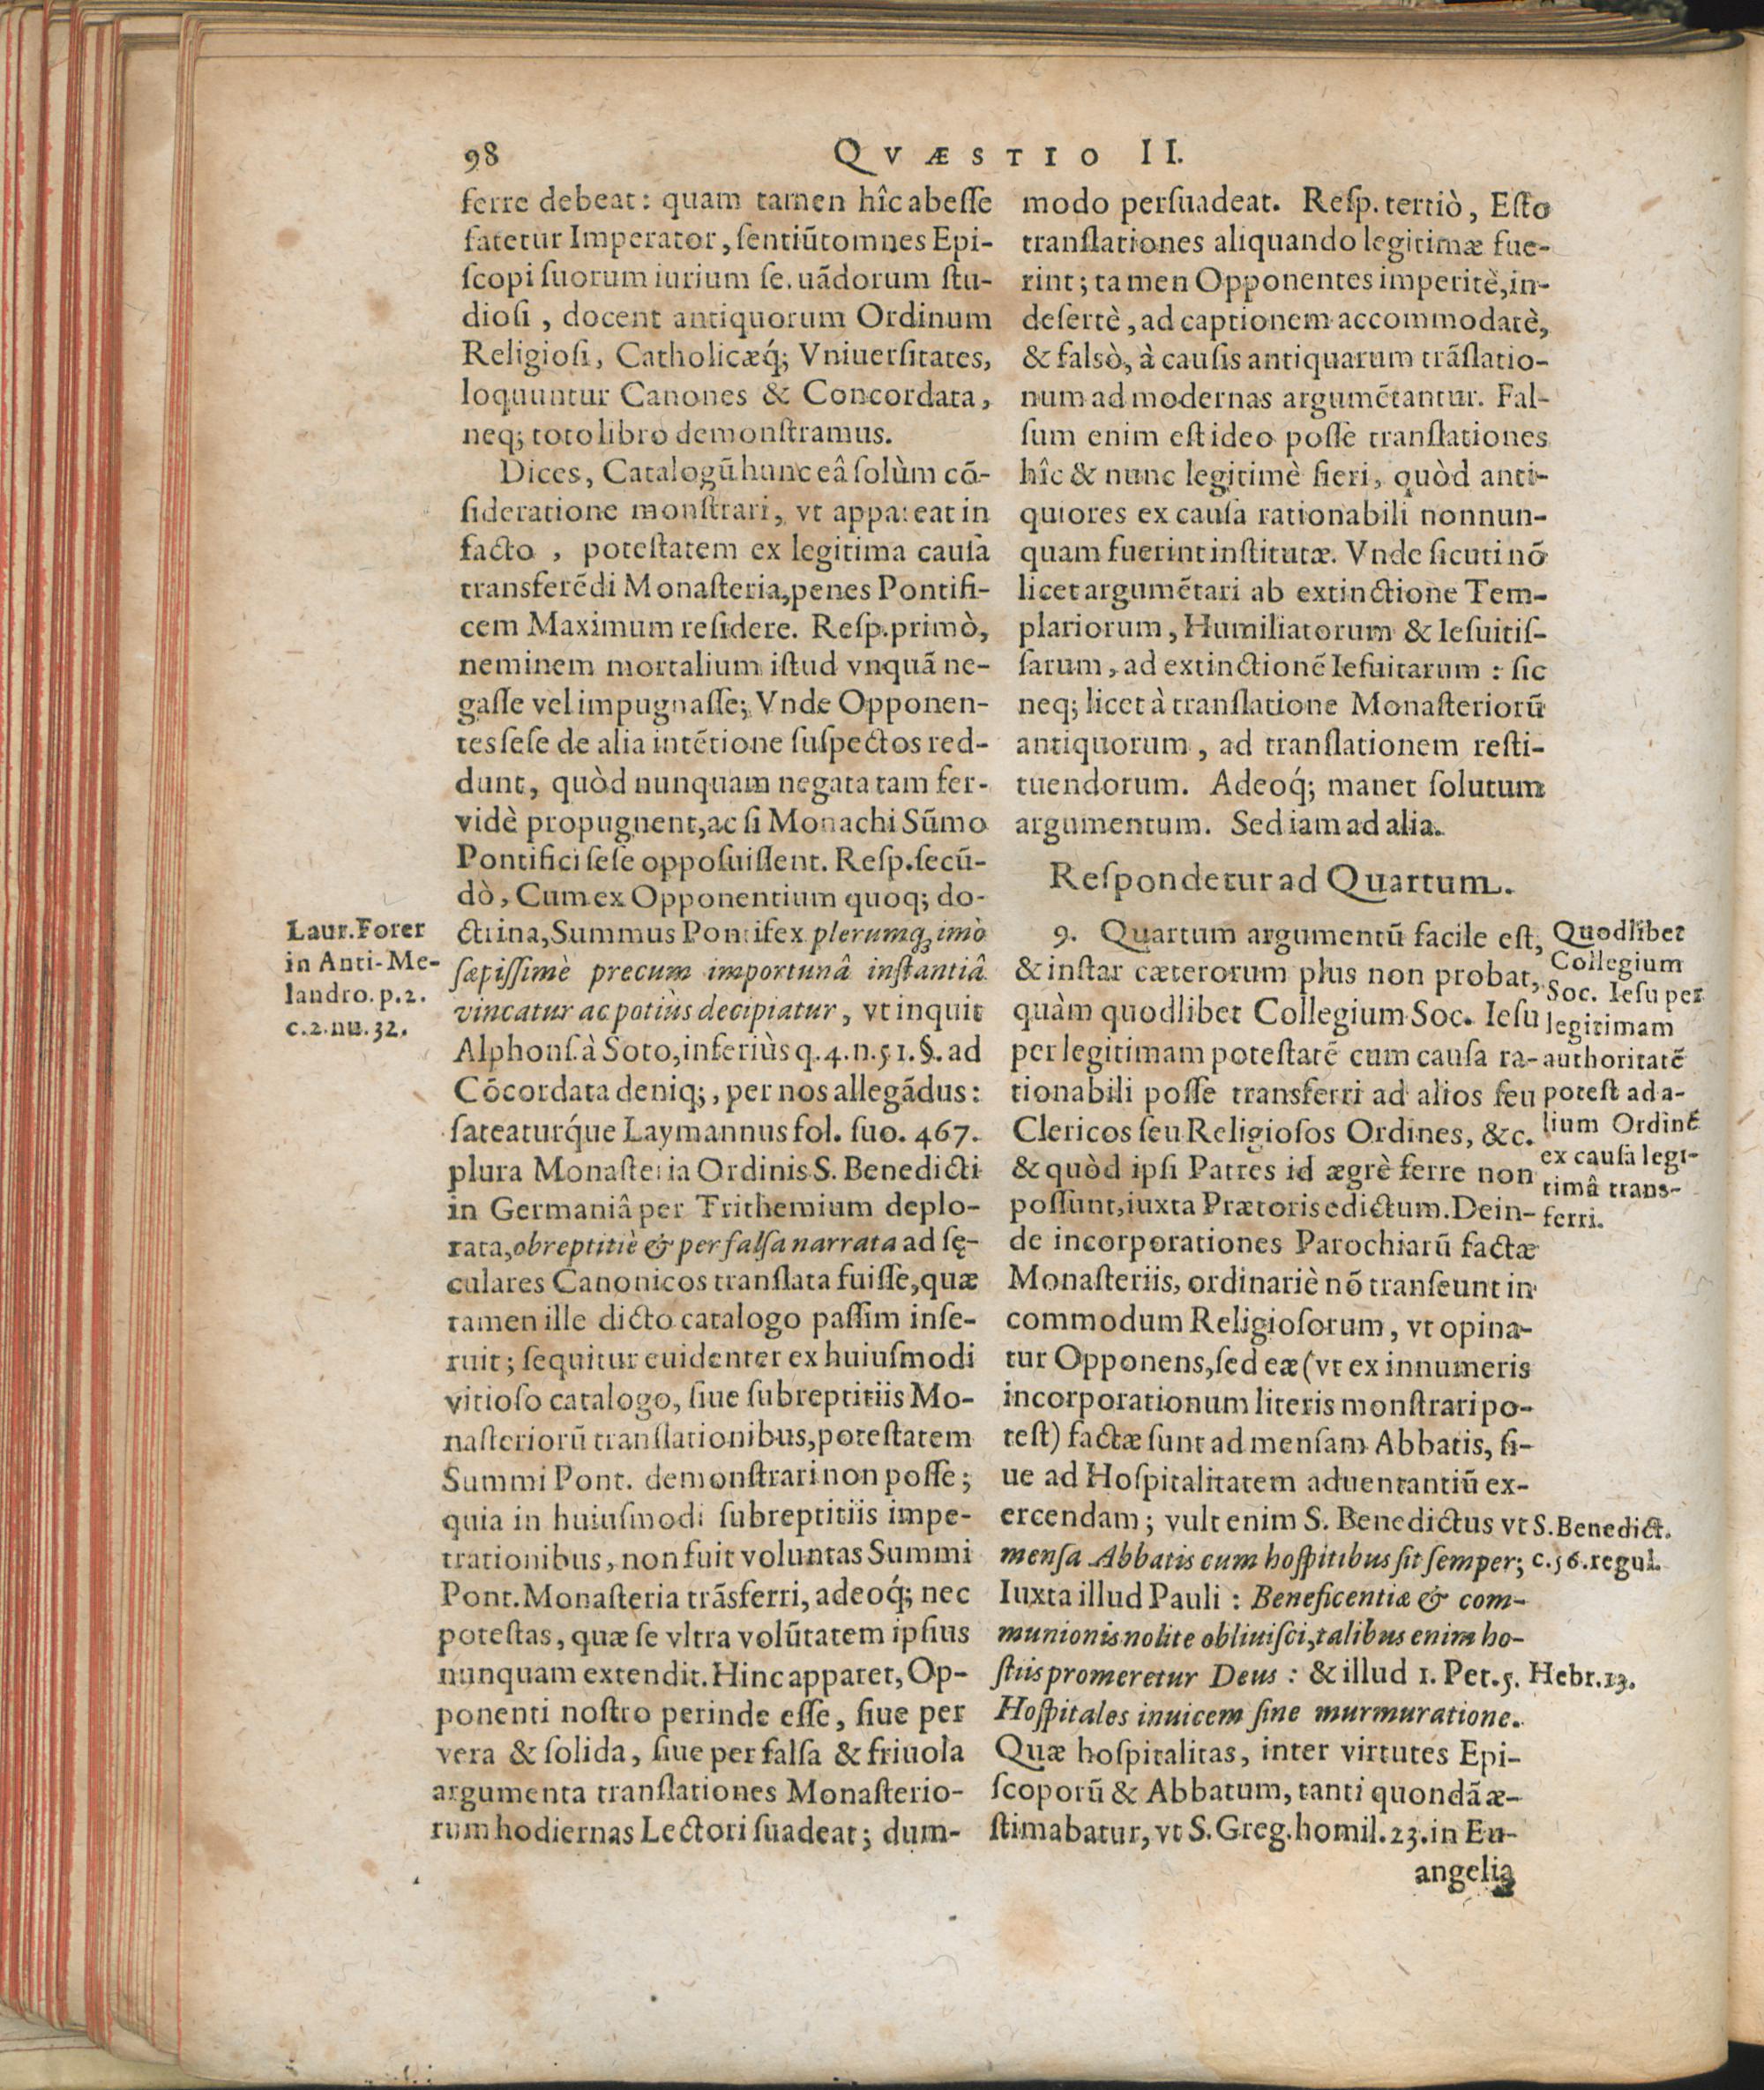 98
QVÆSTIO II.
ferre debeat: quam tamen hîc abeſſe
fatetur Imperator, ſentiũt omnes Epi-
ſcopi ſuorum iurium ſe.uãdorum ſtu-
dioſi, docent antiquorum Ordinum
Religioſi, Catholicæq́; Vniuerſitates,
loquuntur Canones & Concordata,
neq; toto libro demonſtramus.
Dices, Catalogũ hunc eâ ſolùm cõ-
ſideratione monſtrari, vt appareat in
facto, poteſtatem ex legitima cauſa
transferẽdi Monaſteria, penes Pontifi-
cem Maximum reſidere. Reſp. primò,
neminem mortalium iſtud vnquã ne-
gaſſe vel impugnaſſe; Vnde Opponen-
tes ſeſe de alia intẽtione ſuſpectos red-
dunt, quòd nunquam negata tam fer-
vidè propugnent, ac ſi Monachi Sũmo
Pontifici ſeſe oppoſuiſſent. Reſp. ſecũ-
dò, Cum ex Opponentium quoq; do-
ctrina, Summus Pontifex plerumq; imò
ſæpiſſimè precum importunâ inſtantiâ
vincatur ac potiùs decipiatur, vt inquit
Alphonſ. à Soto, inferiùs q. 4. n. 51. §. ad
Cõcordata deniq;, per nos allegãdus:
fateaturq́ue Laymannus fol. ſuo. 467.
plura Monaſteria Ordinis S. Benedicti
in Germaniâ per Trithemium deplo-
rata, obreptitiè & per falſa narrata ad ſę-
culares Canonicos translata fuiſſe, quæ
tamen ille dicto catalogo paſſim inſe-
ruit; ſequitur euidenter ex huiuſmodi
vitioſo catalogo, ſiue ſubreptitiis Mo-
naſteriorũ translationibus, poteſtatem
Summi Pont. demonſtrari non poſſe;
quia in huiuſmodi ſubreptitiis impe-
trationibus, non fuit voluntas Summi
Pont. Monaſteria trãsferri, adeoq́; nec
poteſtas, quæ ſe vltra volũtatem ipſius
nunquam extendit. Hinc apparet, Op-
ponenti noſtro perinde eſſe, ſiue per
vera & ſolida, ſiue per falſa & friuola
argumenta translationes Monaſterio-
rum hodiernas Lectori ſuadeat; dum-
Laur. Forer
in Anti-Me-
landro. p. 2.
c. 2. nu. 32.
modo perſuadeat. Reſp. tertiò, Eſto
translationes aliquando legitimæ fue-
rint; tamen Opponentes imperitè, in-
deſertè, ad captionem accommodatè,
& falsò, à cauſis antiquarum trãslatio-
num ad modernas argumẽtantur. Fal-
ſum enim eſt ideo poſſe translationes
hîc & nunc legitimè fieri, quòd anti-
quiores ex cauſa rationabili nonnun-
quam fuerint inſtitutæ. Vnde ſicuti nõ
licet argumẽtari ab extinctione Tem-
plariorum, Humiliatorum & Ieſuitiſ-
ſarum, ad extinctionẽ Ieſuitarum: ſic
neq; licet à translatione Monaſteriorũ
antiquorum, ad translationem reſti-
tuendorum. Adeoq́; manet ſolutum
argumentum. Sed iam ad alia.
Reſpondetur ad Quartum.
9. Quartum argumentũ facile eſt,
& inſtar cæterorum plus non probat,
quàm quodlibet Collegium Soc. Ieſu
per legitimam poteſtatẽ cum cauſa ra-
tionabili poſſe transferri ad alios ſeu
Clericos ſeu Religioſos Ordines, &c.
& quòd ipſi Patres id ægrè ferre non
poſſunt, iuxta Prætoris edictum. Dein-
de incorporationes Parochiarũ factæ
Monaſteriis, ordinariè nõ tranſeunt in
commodum Religioſorum, vt opina-
tur Opponens, ſed eæ (vt ex innumeris
incorporationum literis monſtrari po-
teſt) factæ ſunt ad menſam Abbatis, ſi-
ue ad Hoſpitalitatem aduentantiũ ex-
ercendam; vult enim S. Benedictus vt
menſa Abbatis cum hoſpitibus ſit ſemper;
Iuxta illud Pauli: Beneficentiæ & com-
munionis nolite obliuiſci, talibus enim ho-
ſtiis promeretur Deus: & illud 1. Pet. 5.
Hoſpitales inuicem ſine murmuratione.
Quæ hoſpitalitas, inter virtutes Epi-
ſcoporũ & Abbatum, tanti quondã æ-
ſtimabatur, vt S. Greg. homil. 23. in Eu-
angelia
Quodlibet
Collegium
Soc. Ieſu per
legitimam
authoritatẽ
poteſt ad a-
lium Ordinẽ
ex cauſa legi-
timâ trans-
ferri.
S. Benedict.
c. 56. regul.
Hebr. 13.